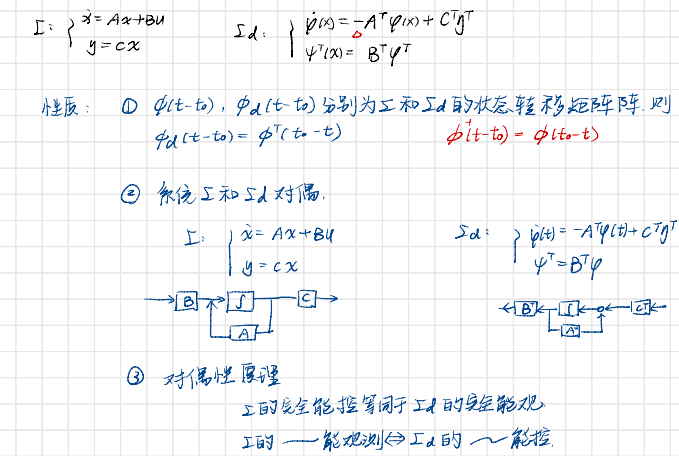 Σ: { ẋ = Ax + Bu
y = cx
Σd: { φ̇(x) = -Aᵀφ(x) + Cᵀηᵀ
ψᵀ(x) = Bᵀφᵀ
性质: ① φ(t-t₀), φd(t-t₀) 分别为Σ和Σd的状态转移矩阵阵. 则
φd(t-t₀) = φᵀ(t₀-t) φ⁻¹(t-t₀) = φ(t₀-t)
② 系统Σ和Σd对偶.
Σ: { ẋ = Ax + Bu
y = cx
Σd: { φ̇(t) = -Aᵀφ(t) + Cᵀηᵀ
ψᵀ = Bᵀφ
B ∫ C
A
Bᵀ ∫ Cᵀ
Aᵀ
③ 对偶性原理
Σ的完全能控等同于Σd的完全能观.
Σ的 —— 能观测⇔Σd的 ~ 能控.